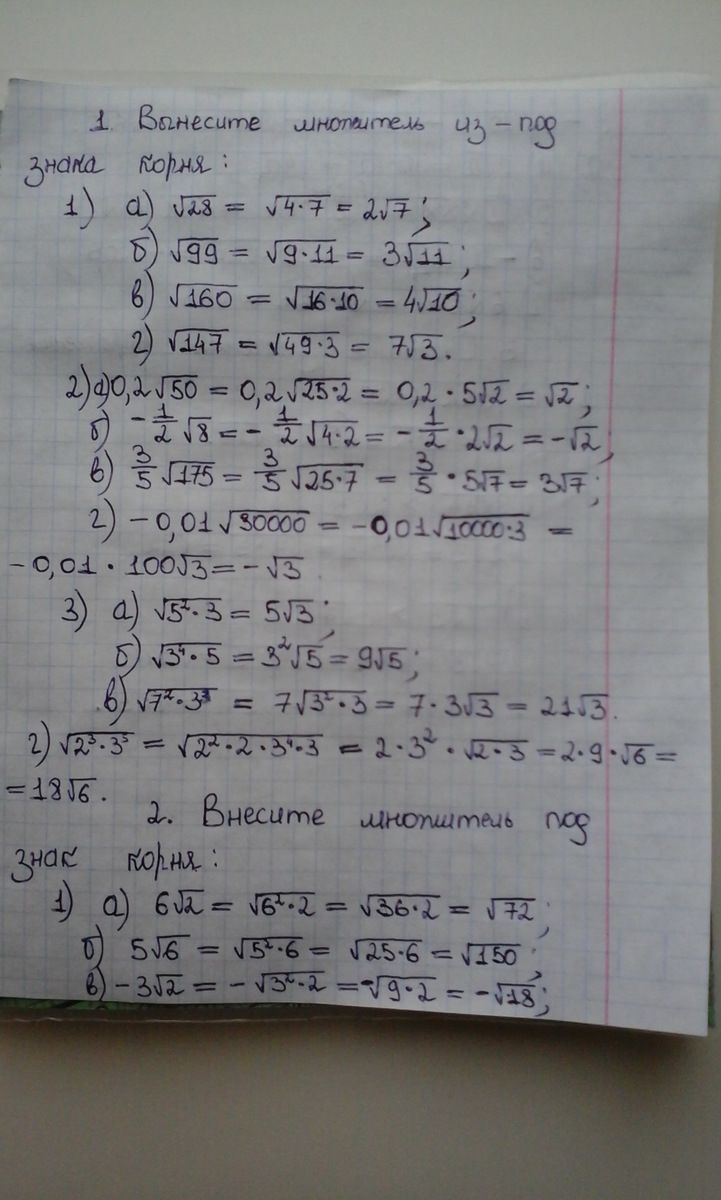 1. Вынесите множитель из-под
знака корня:
1) а) √28 = √4·7 = 2√7;
б) √99 = √9·11 = 3√11;
в) √160 = √16·10 = 4√10;
г) √147 = √49·3 = 7√3.
2) а) 0,2√50 = 0,2√25·2 = 0,2·5√2 = √2;
б) -1/2√8 = -1/2√4·2 = -1/2·2√2 = -√2;
в) 3/5√175 = 3/5√25·7 = 3/5·5√7 = 3√7;
г) -0,01√30000 = -0,01√10000·3 =
-0,01·100√3 = -√3
3) а) √5²·3 = 5√3;
б) √3⁴·5 = 3²√5 = 9√5;
в) √7²·3³ = 7√3²·3 = 7·3√3 = 21√3.
г) √2³·3⁵ = √2²·2·3⁴·3 = 2·3²·√2·3 = 2·9·√6 =
= 18√6.
2. Внесите множитель под
знак корня:
1) а) 6√2 = √6²·2 = √36·2 = √72;
б) 5√6 = √5²·6 = √25·6 = √150;
в) -3√2 = -√3²·2 = -√9·2 = -√18;